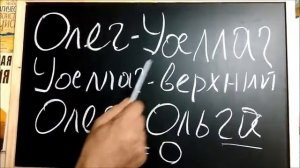 Олег-Уоеллаг
Уоеллаг-верхний
Олег Ольга
-о